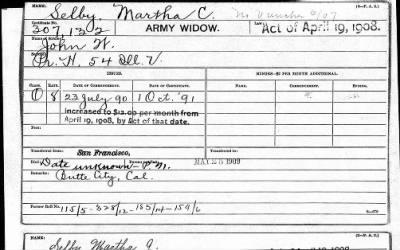 NAME: (3—P. M.)
Selby, Martha C. No Voucher
Certificate No.
307,132 ARMY WIDOW. Act of April 19, 1908.
John W.
Pr. H. 54 Ill. V.
ISSUED. MINORS—$2 PER MONTH ADDITIONAL.
CLASS. RATE. DATE OF COMMENCEMENT. DATE OF CERTIFICATE. COMMENCEMENT.
O 8 23 July 90 1 Oct. '91
Increased to $12.00 per month from
April 19, 1908, by Act of that date.
Transferred from San Francisco,
Died Date unknown - P.M. MAY 25 1909
Remarks: Butte City, Cal.
Former Roll No.
NAME: (3—P. M.)
Selby Martha